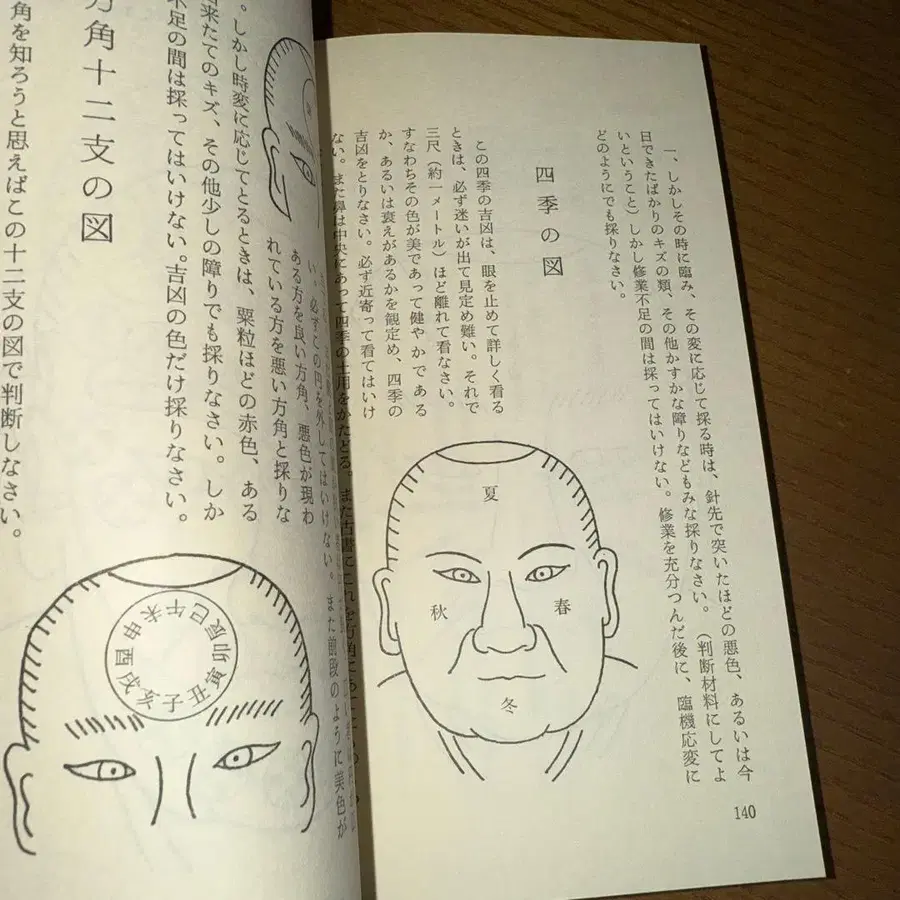 一、しかしその時に臨み、その変に応じて採る時は、針先で突いたほどの悪色、あるいは今
日できたばかりのキズの類、その他かすかな障りなどもみな採りなさい。(判断材料にしてよ
いということ)しかし修業不足の間は採ってはいけない。修業を充分つんだ後に、臨機応変に
どのようにでも採りなさい。
四季の図
この四季の吉凶は、眼を止めて詳しく看る
ときは、必ず迷いが出て見定め難い。それで
三尺(約一メートル)ほど離れて看なさい。
すなわちその色が美であって健やかである
か、あるいは衰えがあるかを観定め、四季の
吉凶をとりなさい。必ず近寄って看てはいけ
ない。また鼻は中央にあって四季の土用をかたどる。また古書にこれを方角に
夏
秋
春
冬
140
い。必ずこの円を外してはいけない。また前段のように美色が
ある方を良い方角、悪色が現わ
れている方を悪い方角と採りな
。しかし時変に応じてとるときは、粟粒ほどの赤色、ある
来たてのキズ、その他少しの障りでも採りなさい。しか
不足の間は採ってはいけない。吉凶の色だけ採りなさい。
方角十二支の図
角を知ろうと思えばこの十二支の図で判断しなさい。
子
丑
寅
卯
辰
巳
午
未
申
酉
戌
亥